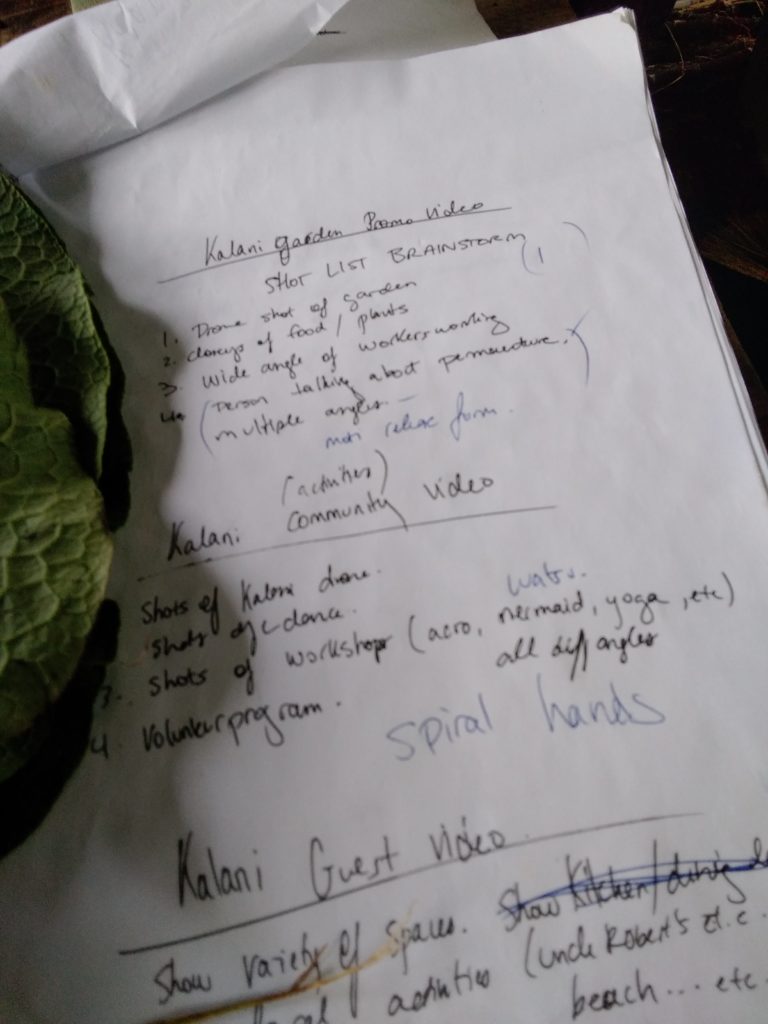 Kalani garden Promo Video
SHOT LIST BRAINSTORM (1)
1. Drone shot of garden
2. closeups of food / plants
3. Wide angle of workers working
4. (Person talking about permaculture.)
multiple angles -
release form.
(activities)
Kalani Community Video
Shots of Kalani drone.
shots of dance. water.
3. shots of workshop (acro, mermaid, yoga, etc)
all diff angles
4 Volunteer program.
spiral hands
Kalani Guest Video
Show variety of Spaces. Show Kitchen/
activities (uncle Robert's et.c
beach... etc.